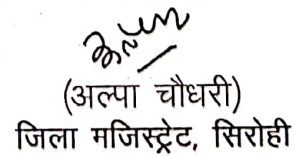 (अल्पा चौधरी)
जिला मजिस्ट्रेट, सिरोही